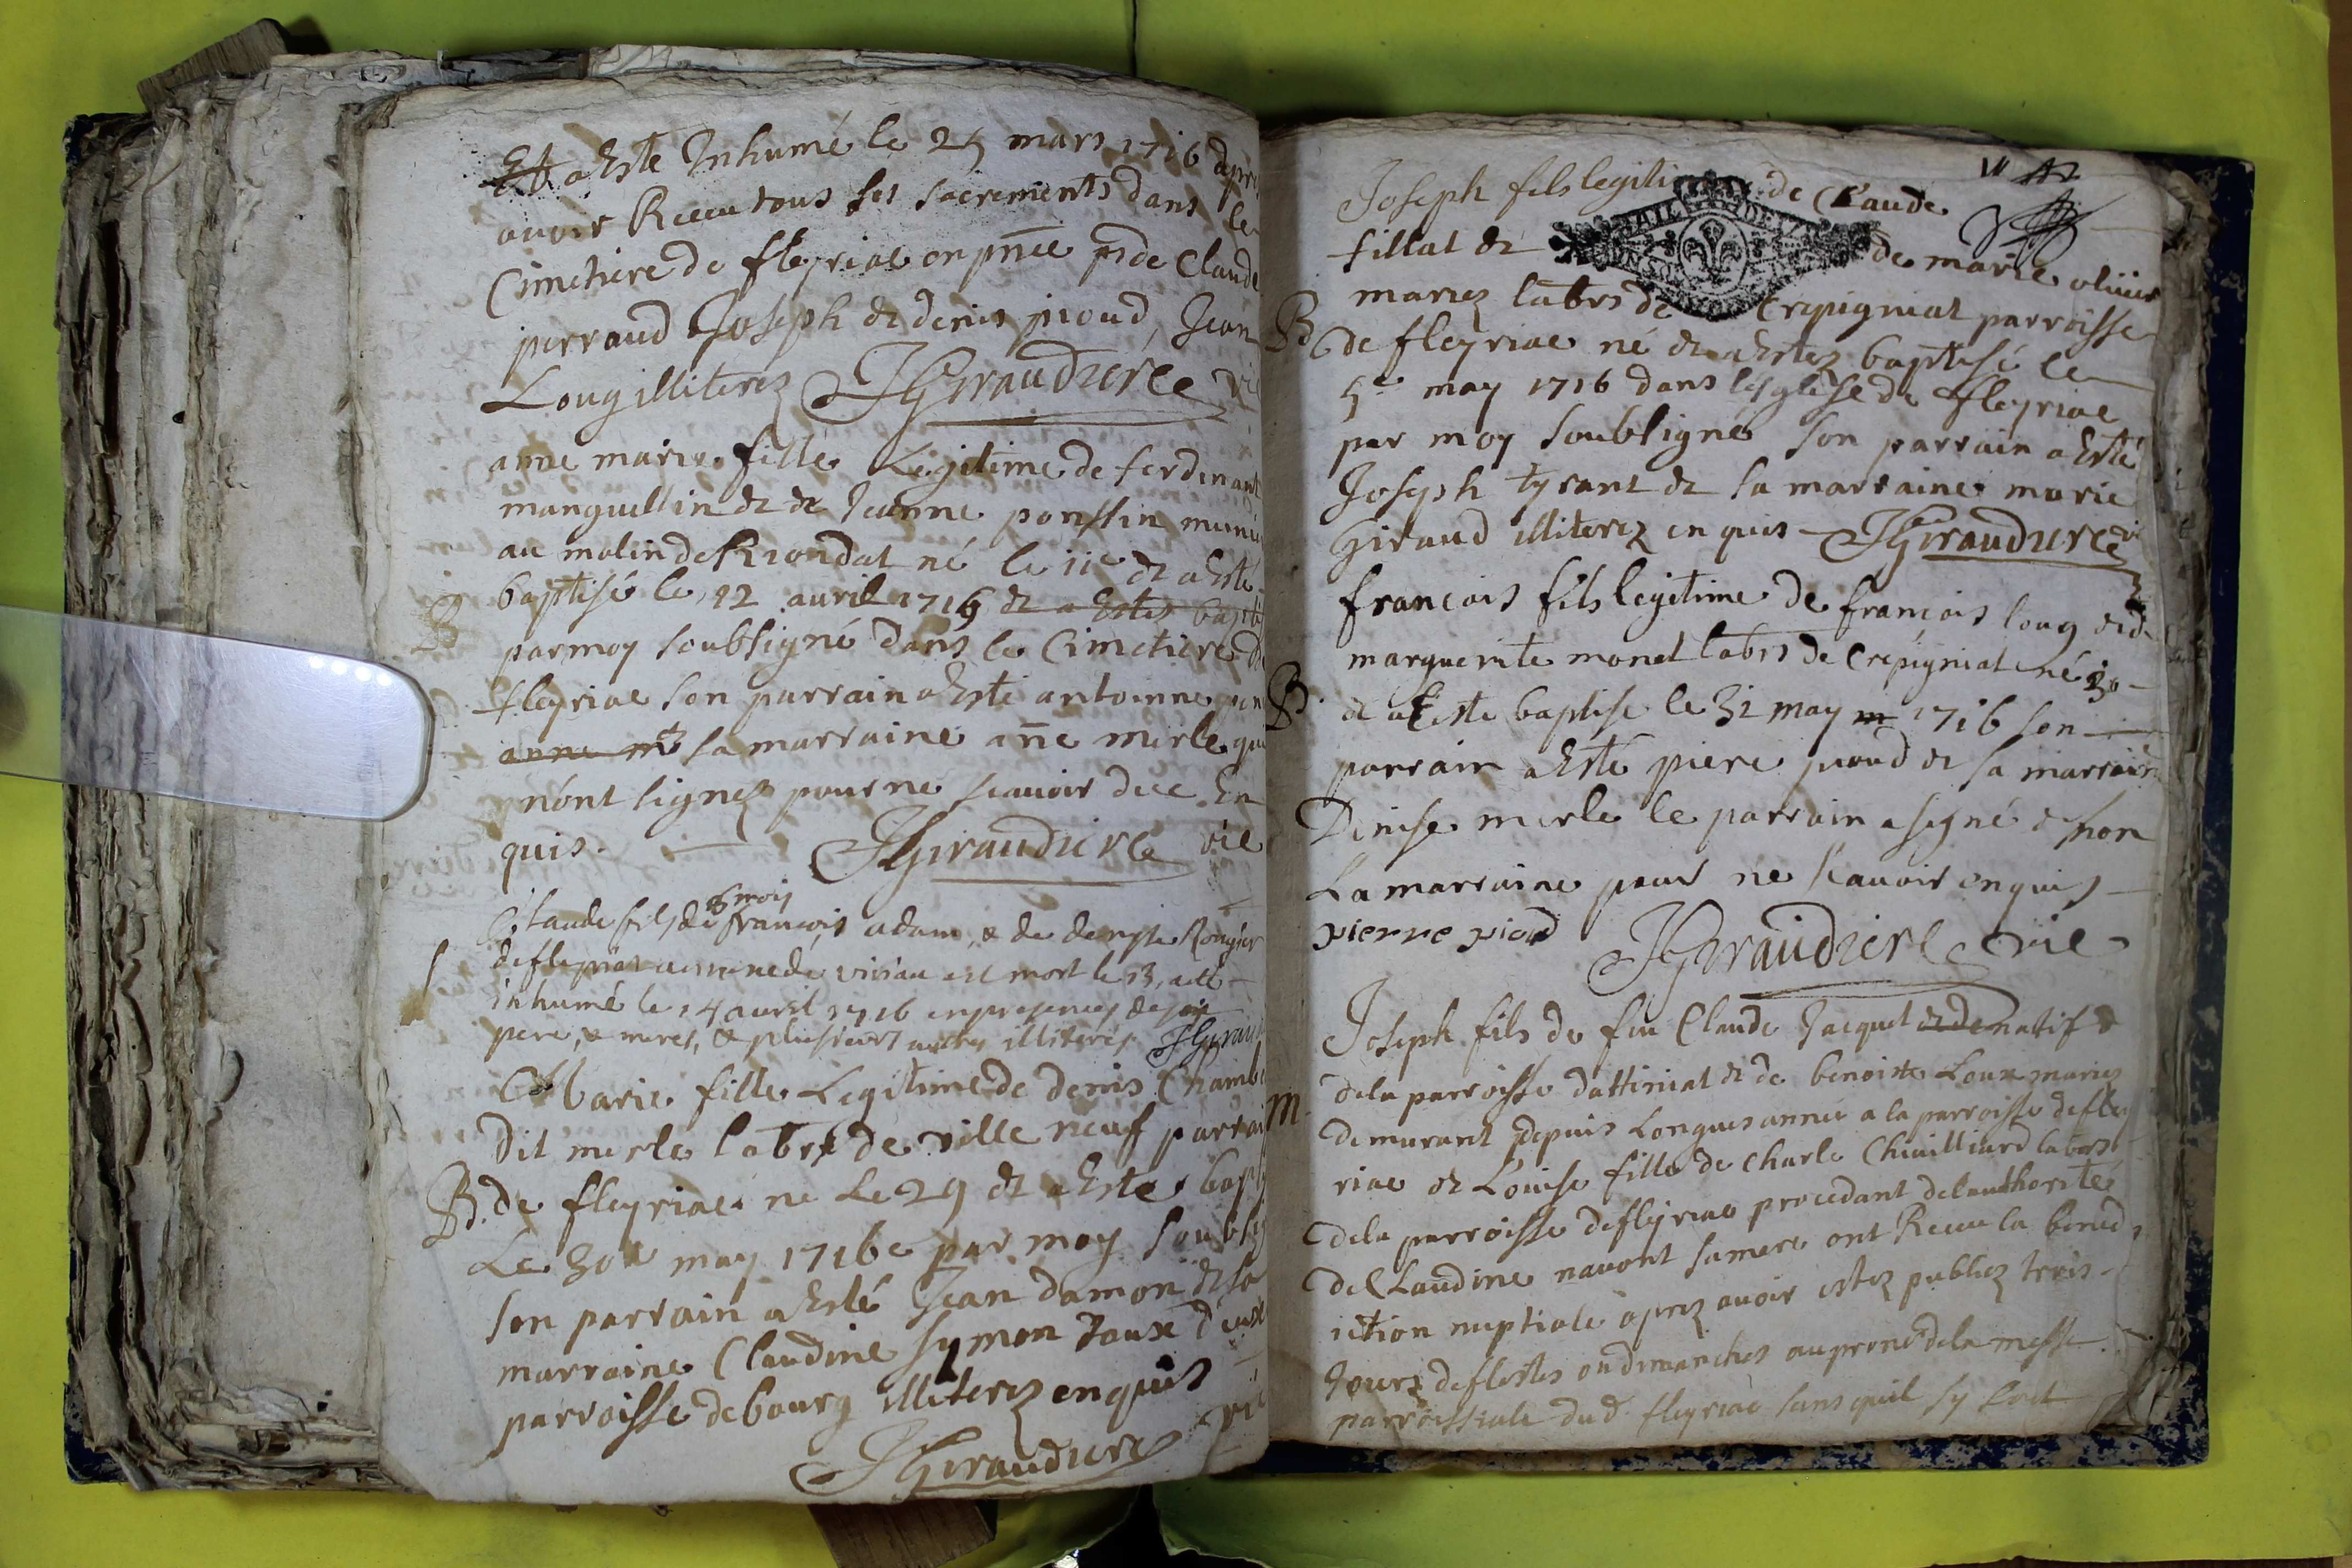 Et a Este Inhumé le 25 mars 1716 apres
avoir Receu tous ses sacrements dans le
Cimetiere de fleyriac en pnce de Claude
perraud Joseph & denis pioud, Jean
Loug illiterez JGiraudiere vic
anne marie fille Legitime de ferdinant
manguellin & de Jeanne ponssin
au molin de Riondat né le 11e & a Esté
baptisé le 12 avril 1716 & a Estez bapti
B
par moy soubsigné dans le Cimetiere de
fleyriac son parrain a Esté antoinne
anne m sa marraine ane merle qui
nont signez pour ne scavoir de ce En
quis. JGiraudiere vic
6 mois
Claude fils de francois adam, & de denyse Rougier
S
de fleyriac est mort le 13, a été
inhumé le 14 avril 1716 en presence de son
pere, & mere, & plusieurs autres illiterés JGiraud
Marie fille Legitime de denis Chamb
Dit merle labr de ville neuf parroi
B. de fleyriac né Le 29 & a Este bapt
Le 30e may 1716 par moy soubsig
son parrain a Esté Jean damon & sa
marraine Claudine symon Tous deux
parroisse de bourg illiterez enquis
JGiraudiere vic
Joseph fils legiti de Claude
fillat & de marie olivier
mariez labrs de Crepigniat parroisse
B de fleyriac né & a Estez baptisé le
5e may 1716 dans lesglise de fleyriac
par moy soubsigné son parrain a Esté
Joseph tyrant & sa marraine marie
Giraud illiterez enquis JGiraudiere vic
francois fils legitime de francois loug & de
marguerite monet labrs de Crepigniat né 30
B.
& a Este baptise le 31 may m 1716 son
parrain a Esté piere pioud & sa marraine
Denise merle le parrain a signé & non
La marraine pour ne scavoir enquis
pierre piod JGiraudiere vic
Joseph fils de feu Claude Jacquet & de natif &
de la parroisse dattiniat & de benoiste Loux mariez
M.
demurant depuis Longues année a la parroisse de fley
riac & Louise fille de Charle Chivilliard labrs
de la parroisse de fleyriac procedant de lauthorité
de Claudine navont sa mere ont Receu la bened
iction nuptiale aprez avoir estez publiez trois
Jours de festes ou dimanches au prone de la messe
parroissiale dud. fleyriac sans quil sy soit